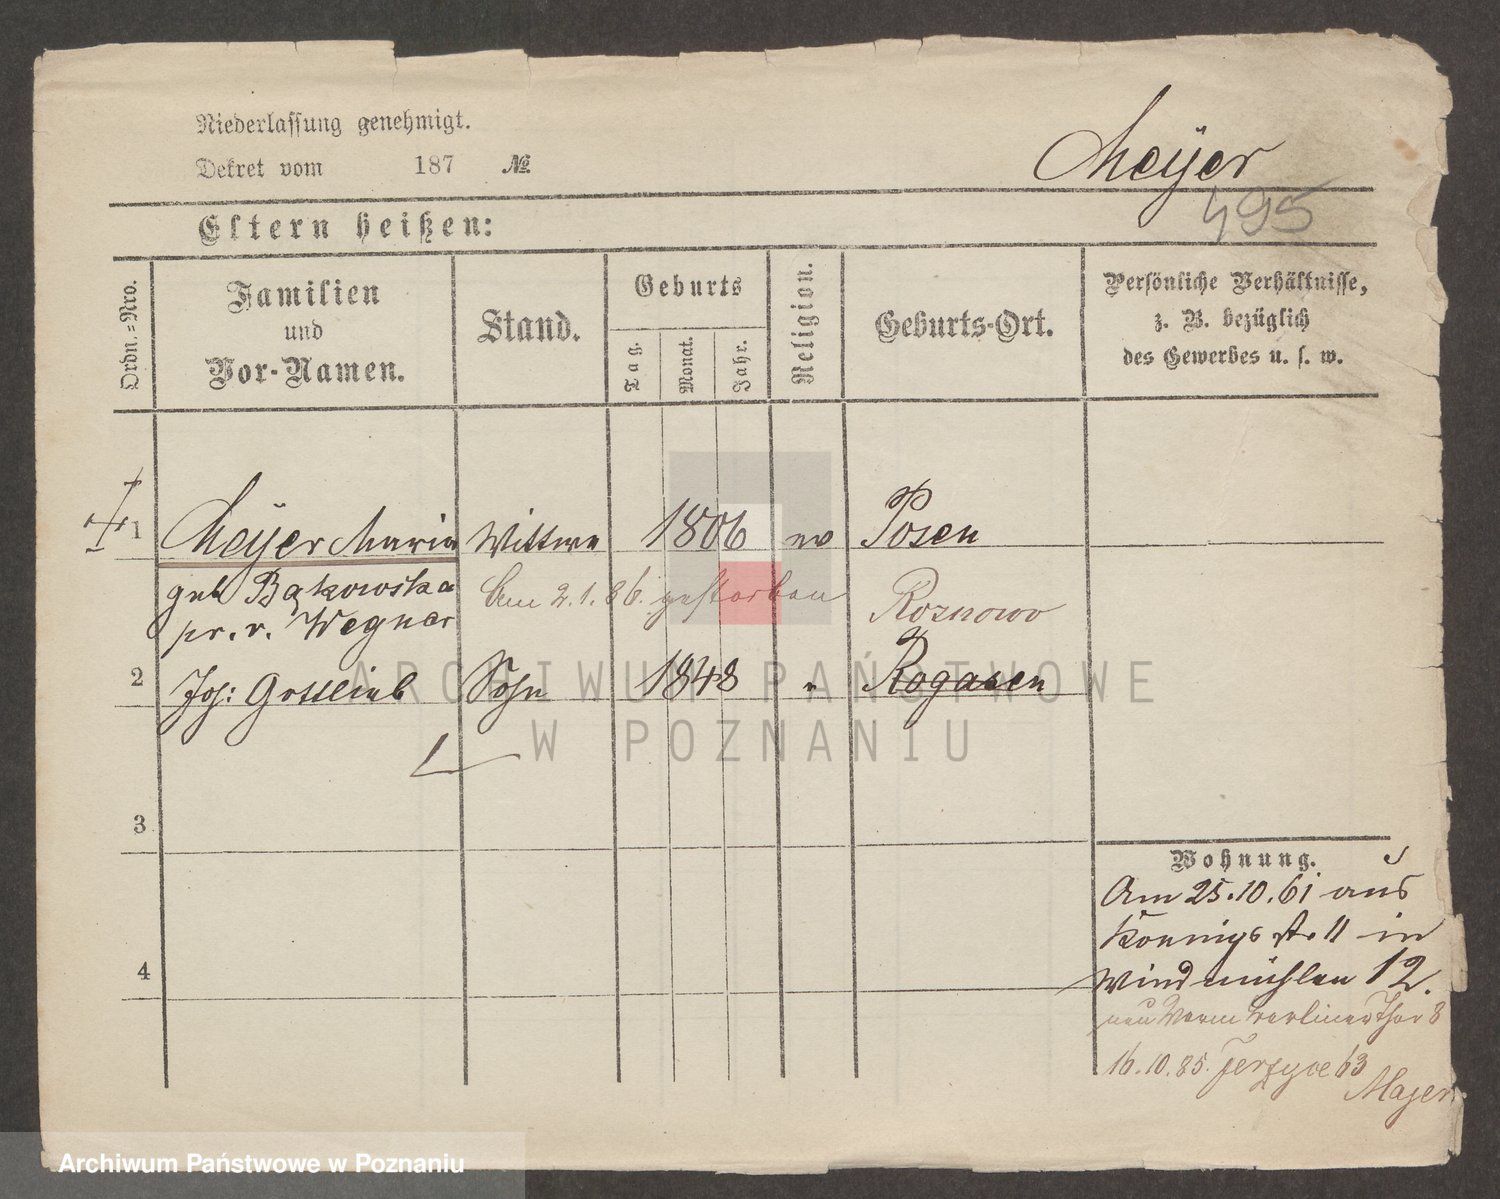 Niederlassung genehmigt.
Dekret vom 187 №
Meÿer
495
Eltern heißen:
Ordn.=Nro.
Familien
und
Vor-Namen.
Stand.
Geburts
Tag.
Monat.
Jahr.
Religion.
Geburts-Ort.
Persönliche Verhältnisse,
z. B. bezüglich
des Gewerbes u. s. w.
1 Meÿer Maria Wittwe 1806 ev Posen
geb Bąkowska Am 2.1.86. gestorben Roznowo
pr. v. Wegner
2 Joh: Gottlieb Sohn 1848 " Rogasen
3
4
Wohnung.
Am 25.10.61 aus
Koenigsstr 11 in
Windmühlen 12.
neu Vorm Berliner Thor 8
16.10.85. Jerzyce 63
Majer
ARCHIWUM PAŃSTWOWE
W POZNANIU
Archiwum Państwowe w Poznaniu